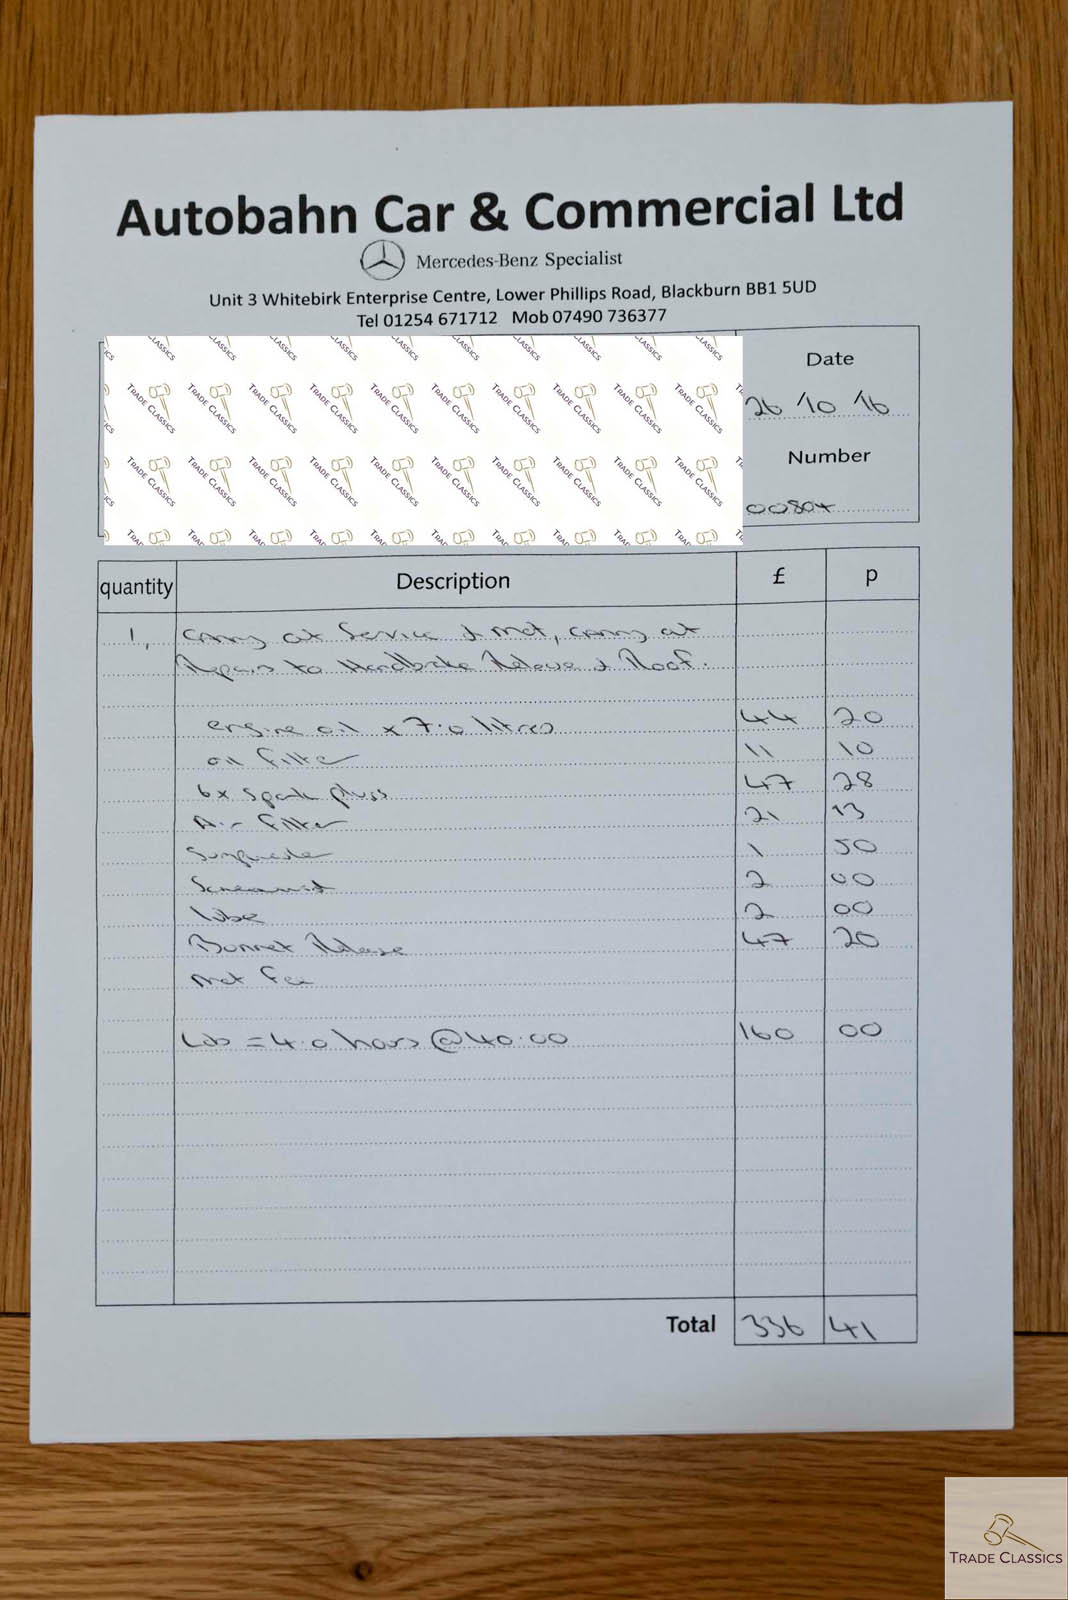 Autobahn Car & Commercial Ltd
Mercedes-Benz Specialist
Unit 3 Whitebirk Enterprise Centre, Lower Phillips Road, Blackburn BB1 5UD
Tel 01254 671712 Mob 07490 736377
TRADE CLASSICS
Date
26/10/16
Number
00804
quantity Description £ p
1, Carry out Service & Mot, carry out
Repairs to Handbrake Release & Roof.
engine oil x 7.0 litres 44 20
oil filter 11 10
6x Spark plugs 47 28
Air filter 21 13
1 50
Screenwash 2 00
lube 2 00
Bonnet Release 47 20
Mot fee
Lab = 4.0 hours @ 40.00 160 00
Total 336 41
TRADE CLASSICS